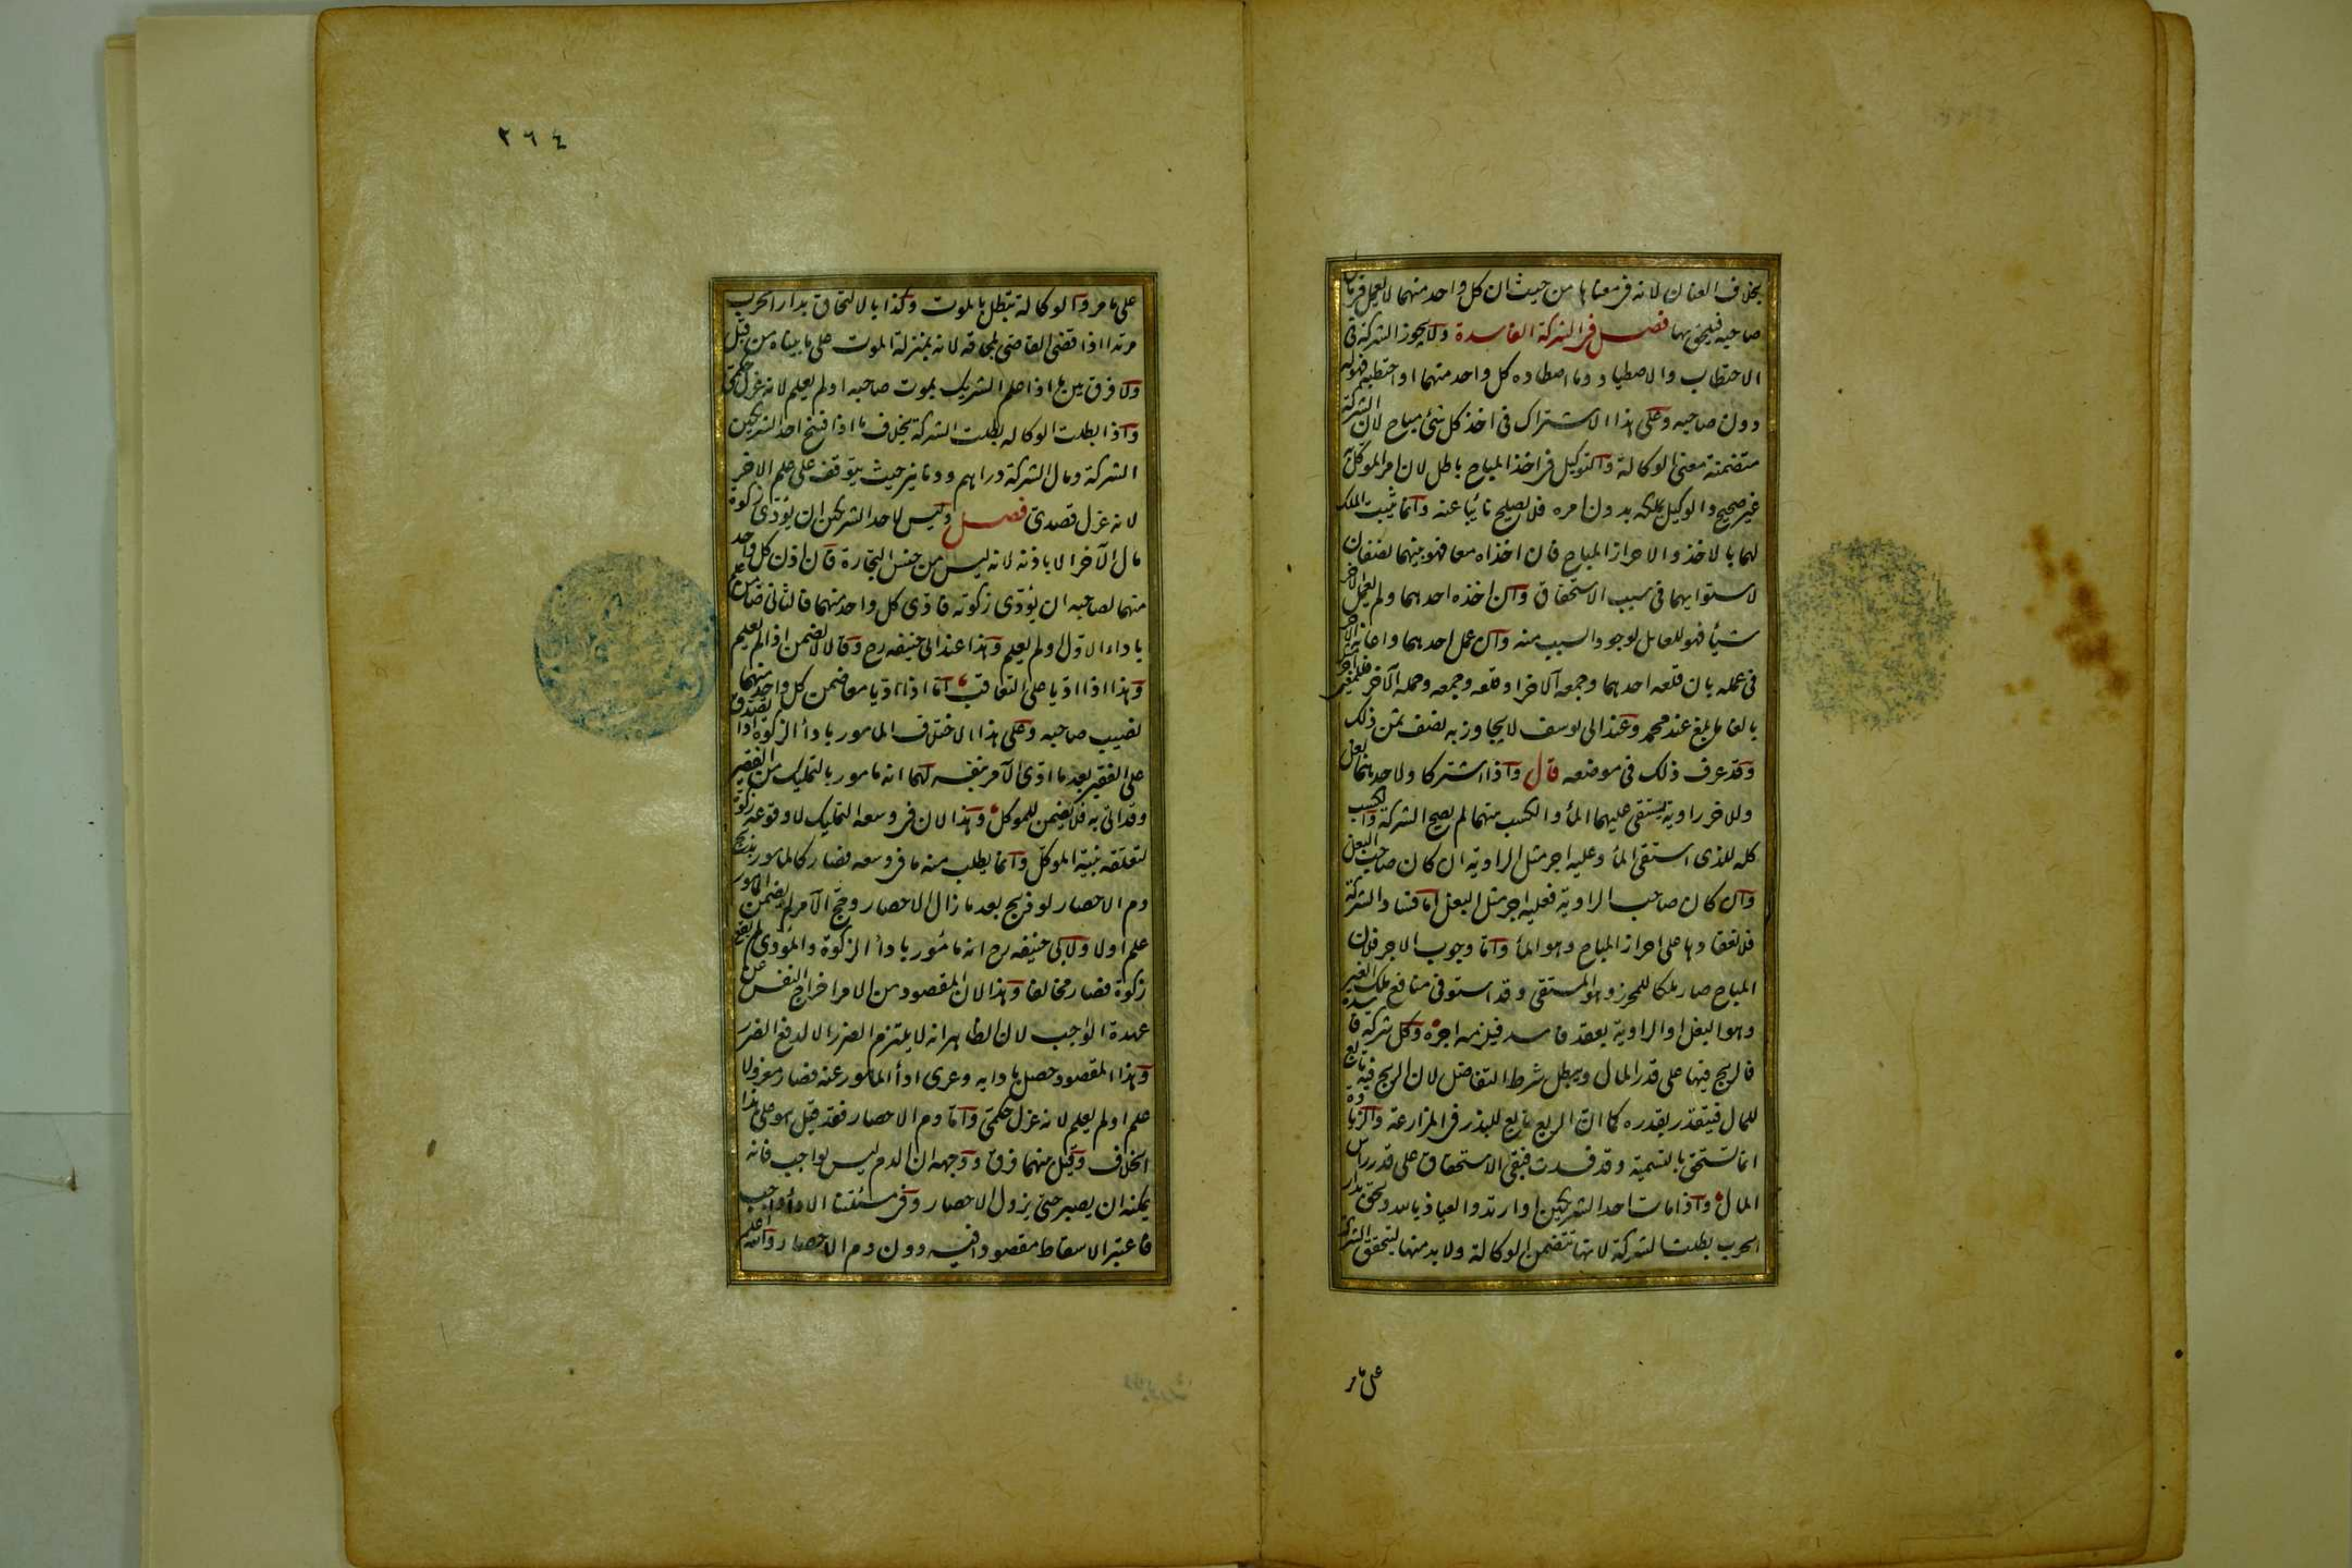 بخلاف العنان لانه فى معناها من حيث ان كل واحد منهما لا يعمل فى مال
صاحبه فيلحق بها فصل فى الشركة الفاسدة ولا يجوز الشركة فى
الاحتطاب والاصطياد وما اصطاده كل واحد منهما او احتطبه فهو له
دون صاحبه وعلى هذا الاشتراك فى اخذ كل شئ مباح لان الشركة
متضمنة معنى الوكالة والتوكيل فى اخذ المباح باطل لان امر الموكل به
غير صحيح والوكيل يملكه بدون امره فلا يصلح نائبا عنه وانما يثبت الملك
لهما بالاخذ والاحراز المباح فان اخذاه معا فهو بينهما نصفان
لاستوايهما فى سبب الاستحقاق وان اخذه احدهما ولم يعمل الاخر
شيأ فهو للعامل لوجود السبب منه وان عمل احدهما واعانه الاخر
فى عمله بان قلعه احدهما وجمعه الآخر او قلعه وجمعه وحمله الآخر فللمعين اجر
بالغا ما بلغ عند محمد وعند ابى يوسف لا يجاوز به نصف ثمن ذلك
وقد عرف ذلك فى موضعه قال واذا اشتركا ولاحدهما بغل
وللاخر راوية يستقى عليهما المأ والكسب منهما لم يصح الشركة والكسب
كله للذى استقى المأ وعليه اجر مثل الراوية ان كان صاحب البغل
وان كان صاحب الراوية فعليه اجر مثل البغل اما فساد الشركة
فلانعقادها على احراز المباح وهو المأ واما وجوب الاجر فلان
المباح صار ملكا للمحرز وهو المستقى وقد استوفى منافع ملك الغير
وهو البغل او الراوية بعقد فاسد فيلزمه اجره وكل شركة فاسدة
فالربح فيها على قدر المال ويبطل شرط التفاضل لان الربح فيه تابع
للمال فيتقدر بقدره كما ان الريع تابع للبذر فى المزارعة والزيادة
انما تستحق بالتسمية وقد فسدت فبقى الاستحقاق على قدر راس
المال واذا مات احد الشريكين او ارتد والعياذ بالله ولحق بدار
الحرب بطلت الشركة لانها تتضمن الوكالة ولا بد منها ليتحقق الشركة
على ما مر
٢٦٤
على ما مر والوكالة تبطل بالموت وكذا بالالتحاق بدار الحرب
مرتدا اذا قضى القاضى بلحاقه لانه بمنزلة الموت على ما بيناه من قبل
ولا فرق بين ما اذا علم الشريك بموت صاحبه او لم يعلم لانه عزل حكمى
واذا بطلت الوكاله بطلت الشركة بخلاف ما اذا فسخ احد الشريكين
الشركة ومال الشركة دراهم ودنانير حيث يتوقف على علم الاخر
لانه عزل قصدى فصل وليس لاحد الشريكين ان يؤدى زكوة
مال الآخر الا باذنه لانه ليس من جنس التجارة فان اذن كل واحد
منهما لصاحبه ان يؤدى زكوته فادى كل واحد منهما فالثانى ضامن علم
باداء الاول او لم يعلم وهذا عند ابى حنيفه رح وقالا لا يضمن اذا لم يعلم
وهذا اذا اديا على التعاقب اما اذا اديا معا ضمن كل واحد منهما
نصيب صاحبه وعلى هذا الاختلاف المامور بادأ الزكوة اذا تصدق
على الفقير بعد ما ادى الآمر بنفسه لهما انه مامور بالتمليك من الفقير
وقد اتى به فلا يضمن للموكل وهذا لان فى وسعه التمليك لا وقوعه زكوة
لتعلقه بنية الموكل وانما يطلب منه ما فى وسعه فصار كالمامور بذبح
دم الاحصار لو ذبح بعد ما زال الاحصار وحج الآمر لم يضمن المامور
علم او لا ولابى حنيفه رح انه مأمور بادأ الزكوة والمؤدى لم يقع
زكوة فصار مخالفا وهذا لان المقصود من الامر اخراج النفس عن
عهدة الواجب لان الظاهر انه لا يلتزم الضرر الا لدفع الضرر
وهذا المقصود حصل بادايه وعرى ادأ المامور عنه فصار معزولا
علم او لم يعلم لانه عزل حكمى واما دم الاحصار فقد قيل هو على هذا
الخلاف وقيل بينهما فرق ووجهه ان الدم ليس بواجب فانه
يمكنه ان يصبر حتى يزول الاحصار وفى مسئلتنا الادأ واجب
فاعتبر الاسقاط مقصودا فيه دون دم الاحصار والله اعلم